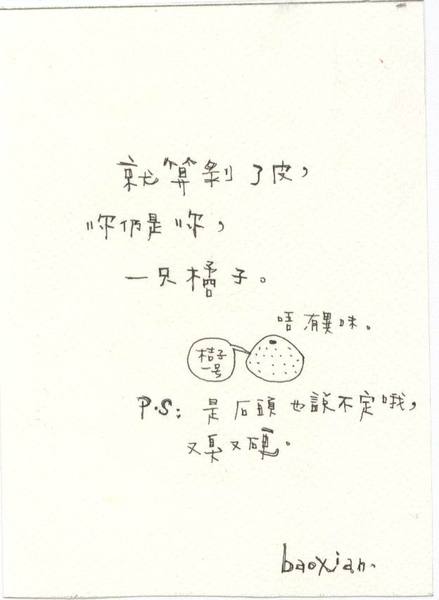 就算剝了皮，
你仍是你，
一只橘子。
唔 有異味。
桔子
一号
P.S: 是石頭也說不定哦，
又臭又硬。
baoxian.